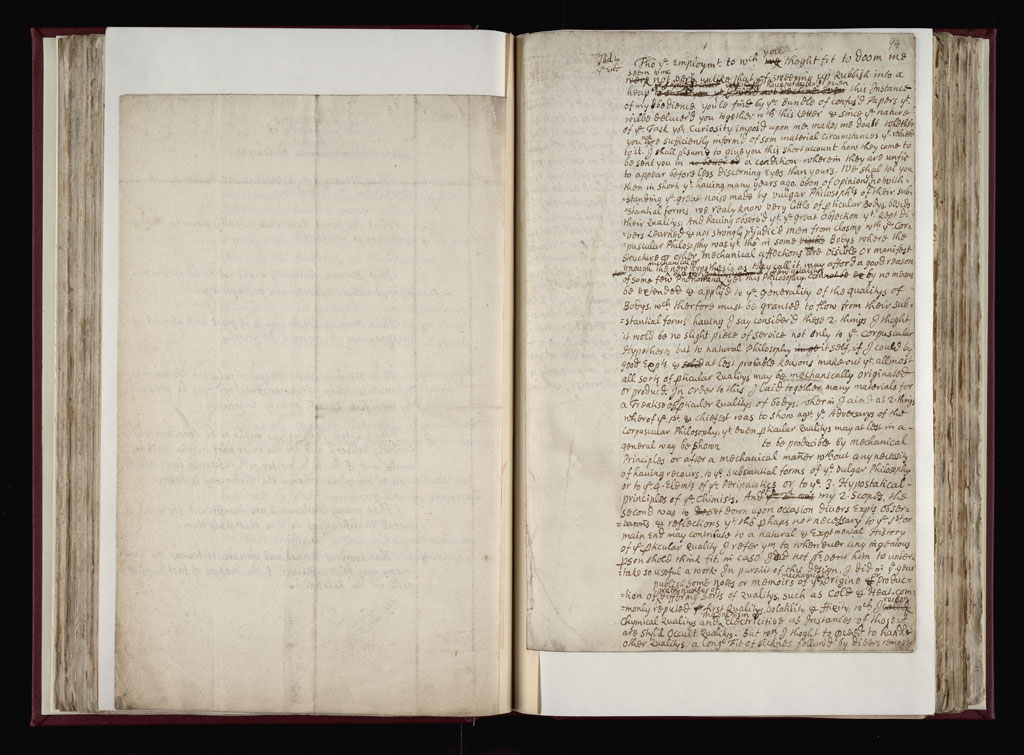 94
Tho yᵉ employmᵗ to wᶜʰ you thoght fit to doom me
seem to me
heap this Instance
of my obedience youle find by yᵉ bundle of confus'd Papers yᵗ
wilbe deliver'd you together wᵗʰ this Letter & since yᵉ nature
of yᵉ Task yᵗ yʳ Curiosity impos'd upon me, makes me doubt whether
you are sufficiently inform'd of som material circumstances yᵗ relate
to it. I shall p̱sume to give you this short account how they come to
be sent you in no better a condition wherein they are unfit
to appear before less discerning Eyes than yours. I shal tel you
then in short yᵗ having many years ago been of opinion, notwith-
-standing yᵉ great noise made by vulgar Philosophʳˢ of their sub-
-stantial forms we realy know very little of p̱ticular Bodys, besides
their Qualitys; And having observ'd yᵗ yᵉ great objection yᵗ kept di-
-vers Learned & not strongly p̱judic'd men from closing wᵗʰ yᵉ Cor-
-puscular Philosophy was yᵗ tho in some Bodys where the
structure or other Mechanical affections are visible or manifest
enough, the mechanical hypothesis as they call it may afford a good reason
of some few Phænomena, yet this Philosophy by no means
be extended & apply'd to yᵉ generality of the qualitys of
Bodys, wᶜʰ therfore must be granted to flow from their sub-
-stantial forms: having I say consider'd these 2 things I thoght
it wold be no slight piece of service not only to yᵉ Corpuscular
Hypothesis but to natural Philosophy itself, if I could by
good Exp̱ᵗˢ & at lest probable Reasons make out yᵗ allmost
all sorts of p̱ticular Qualitys may be mechanically originated
or produc'd. In order to this I laid together many materials for
a Treatise of p̱ticular Qualitys of bodys, wherin I aim'd at 2 things
wherof yᵉ pʳ & chiefest was to show agᵗ yᵉ Adversarys of the
Corpuscular Philosophy, yᵗ even p̱ticular Qualitys may at lest in a-
general way be shown to be producible by mechanical
Principles or after a mechanical mañer wᵗʰout any necessity
of having recours, to yᵉ substantial forms of yᵉ vulgar Philosophy
or to yᵉ 4. Elemᵗˢ of yᵉ Peripateticks or to yᵉ 3. Hypostatical-
-principles of yᵉ Chimists. And my 2. Scopes, the
second was to set down upon occasion divers Exp̱ᵗˢ Obser-
-vations & reflections yᵗ tho p̱haps not necessary to yᵉ 1st or
main End may contribute to a natural & Exp̱mental History
of yᵉ p̱ticular Quality I refer yᵐ to when ever any ingenious
p̱son shold think fit in case I did not p̱vent him to under
-take so useful a work. In pursuit of this design, I did in yᵉ year
publish some Notes or Memoirs of yᵉ mechanical Origine & Produc-
-tion of differing sorts of Qualitys, such as Cold & Heat com-
-monly reputed first Qualitys, Volatility & Fixity, wᶜʰ I reckon
Chymical Qualitys and Magnetism & Electricitie as Instances of those yᵗ
are styl'd Occult Qualitys. But wⁿ I thoght to p̱ceed to handle
other Qualitys, a long Fit of sicknes follow'd by divers removes